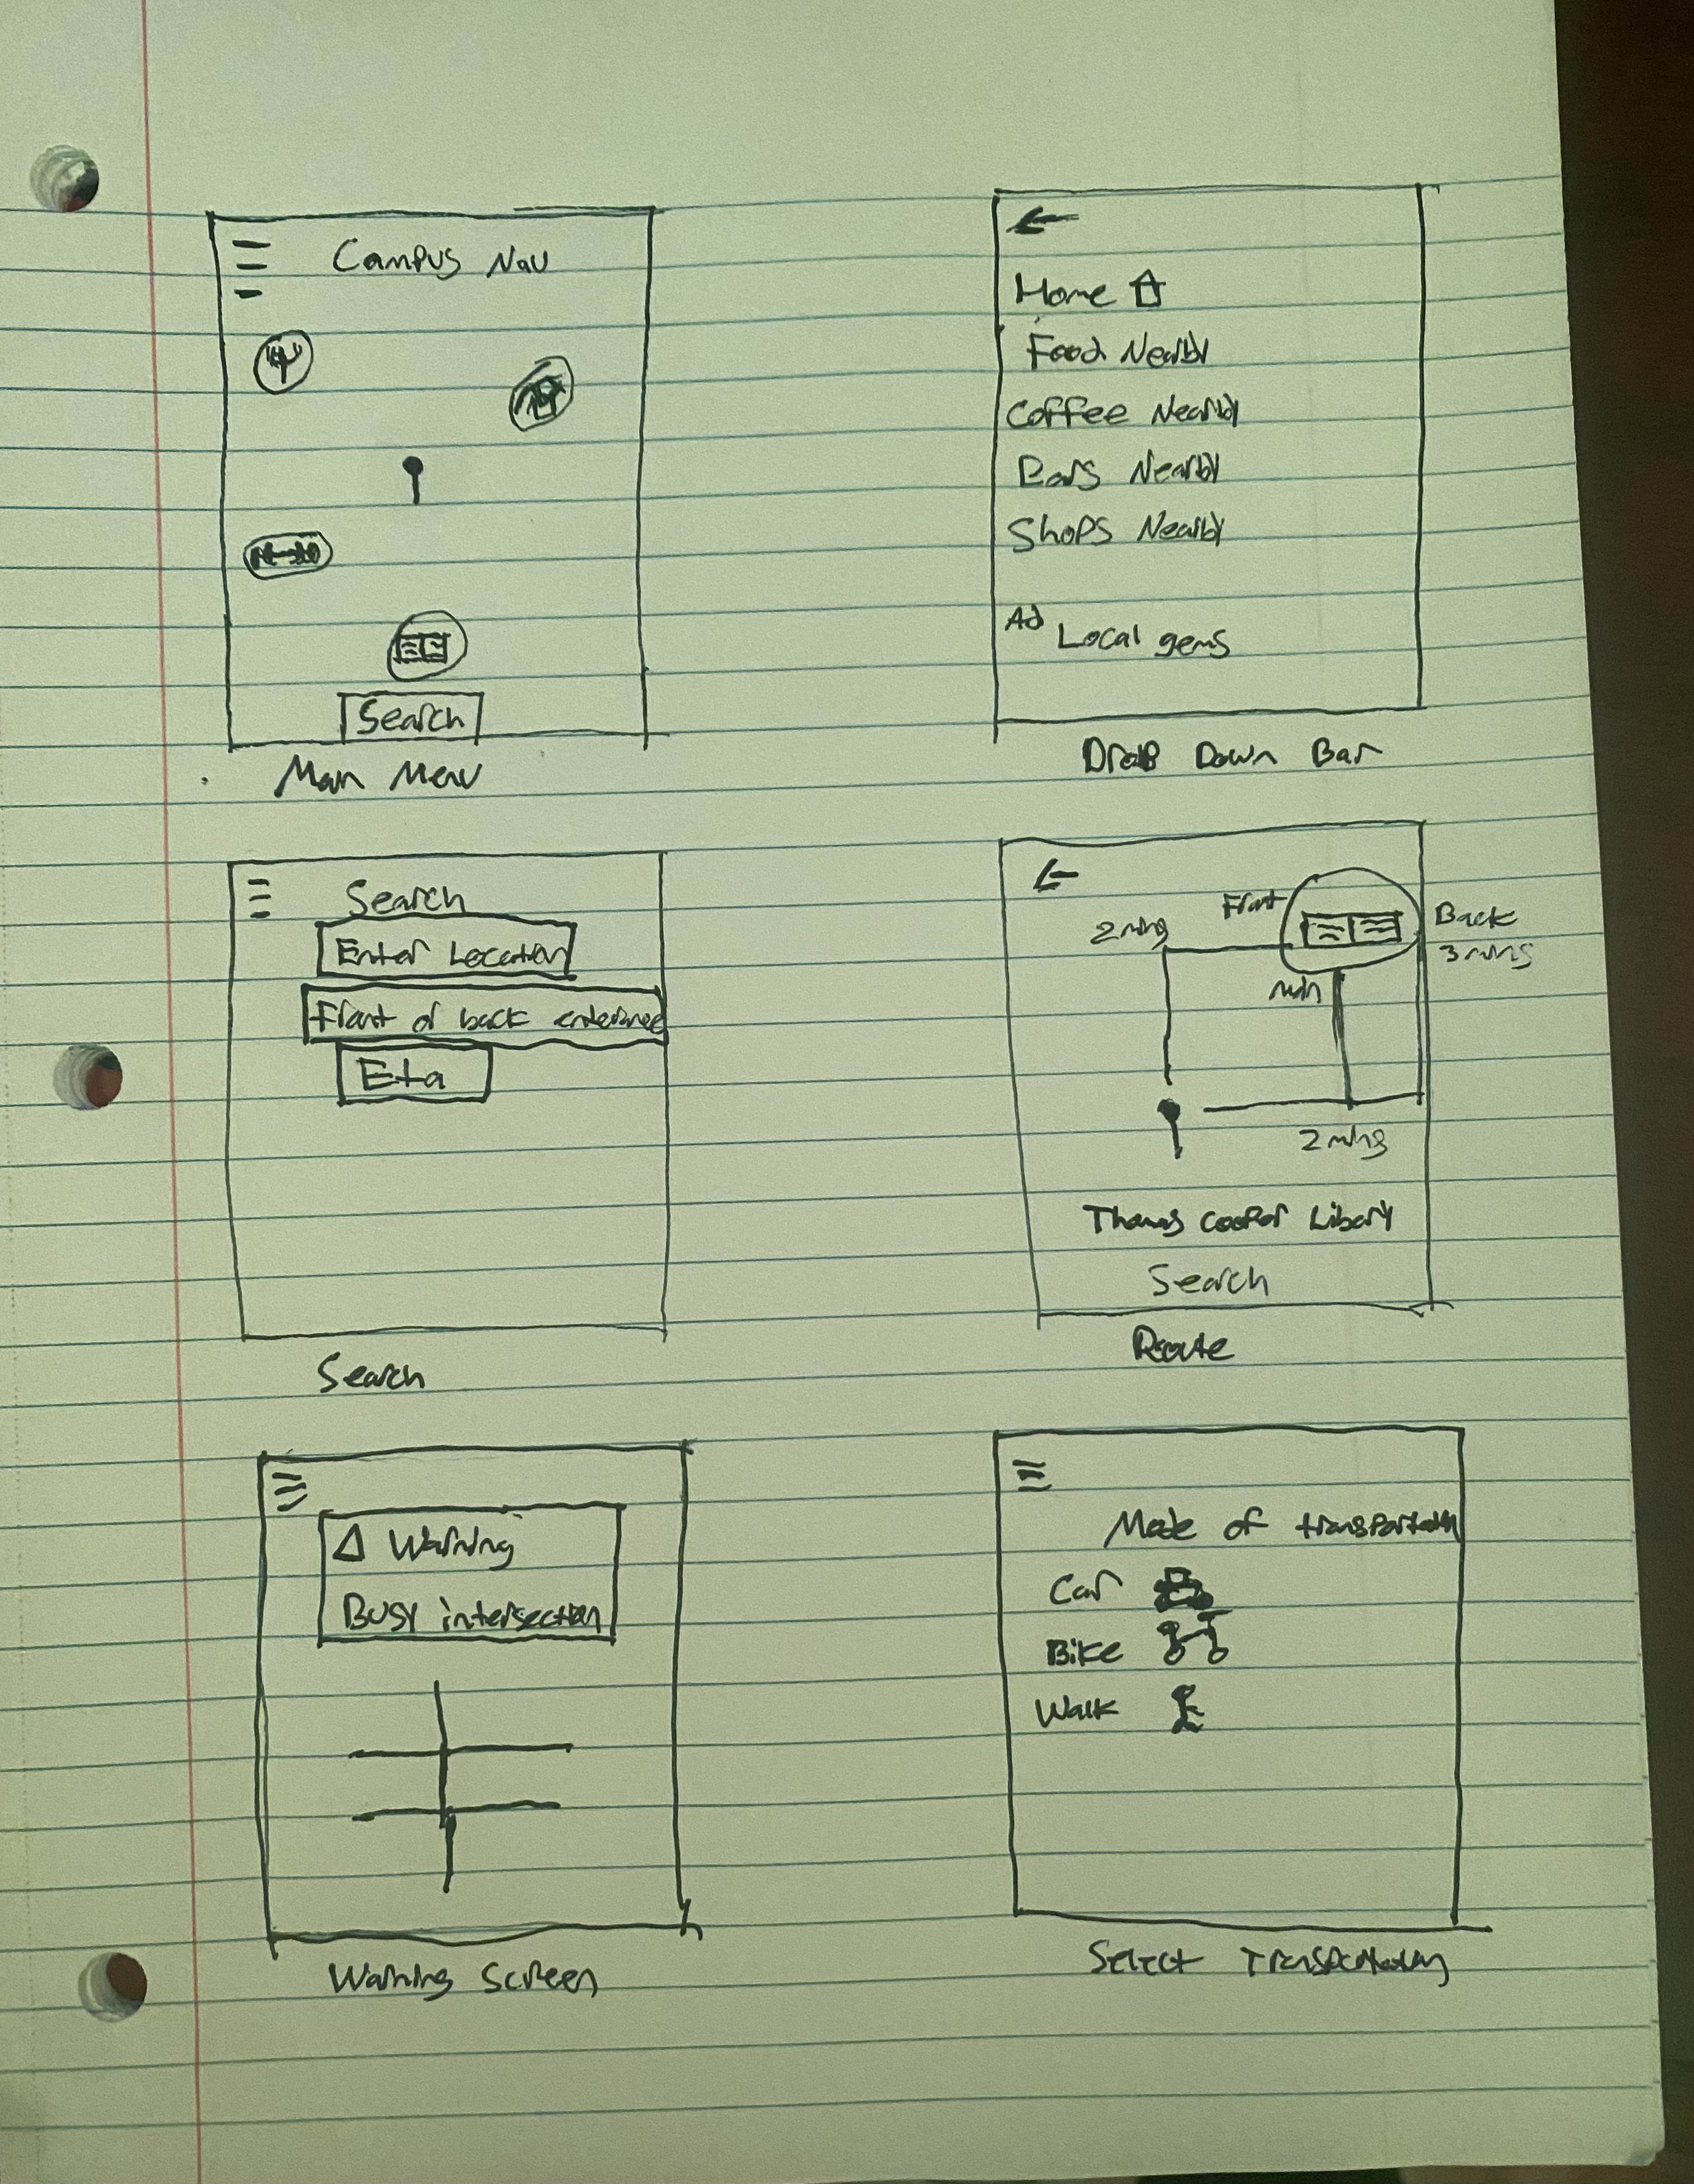 Campus Nav
Search
Main Menu
Home
Food Nearby
Coffee Nearby
Bars Nearby
Shops Nearby
Ad
Local gems
Drop Down Bar
Search
Enter Location
Front or back
Eta
Search
Front
Back
2 mins
3 mins
Main
2 mins
Thomas Cooper Libary
Search
Route
Warning
Busy intersection
Warning Screen
Mode of transportation
Car
Bike
Walk
Select Transportation